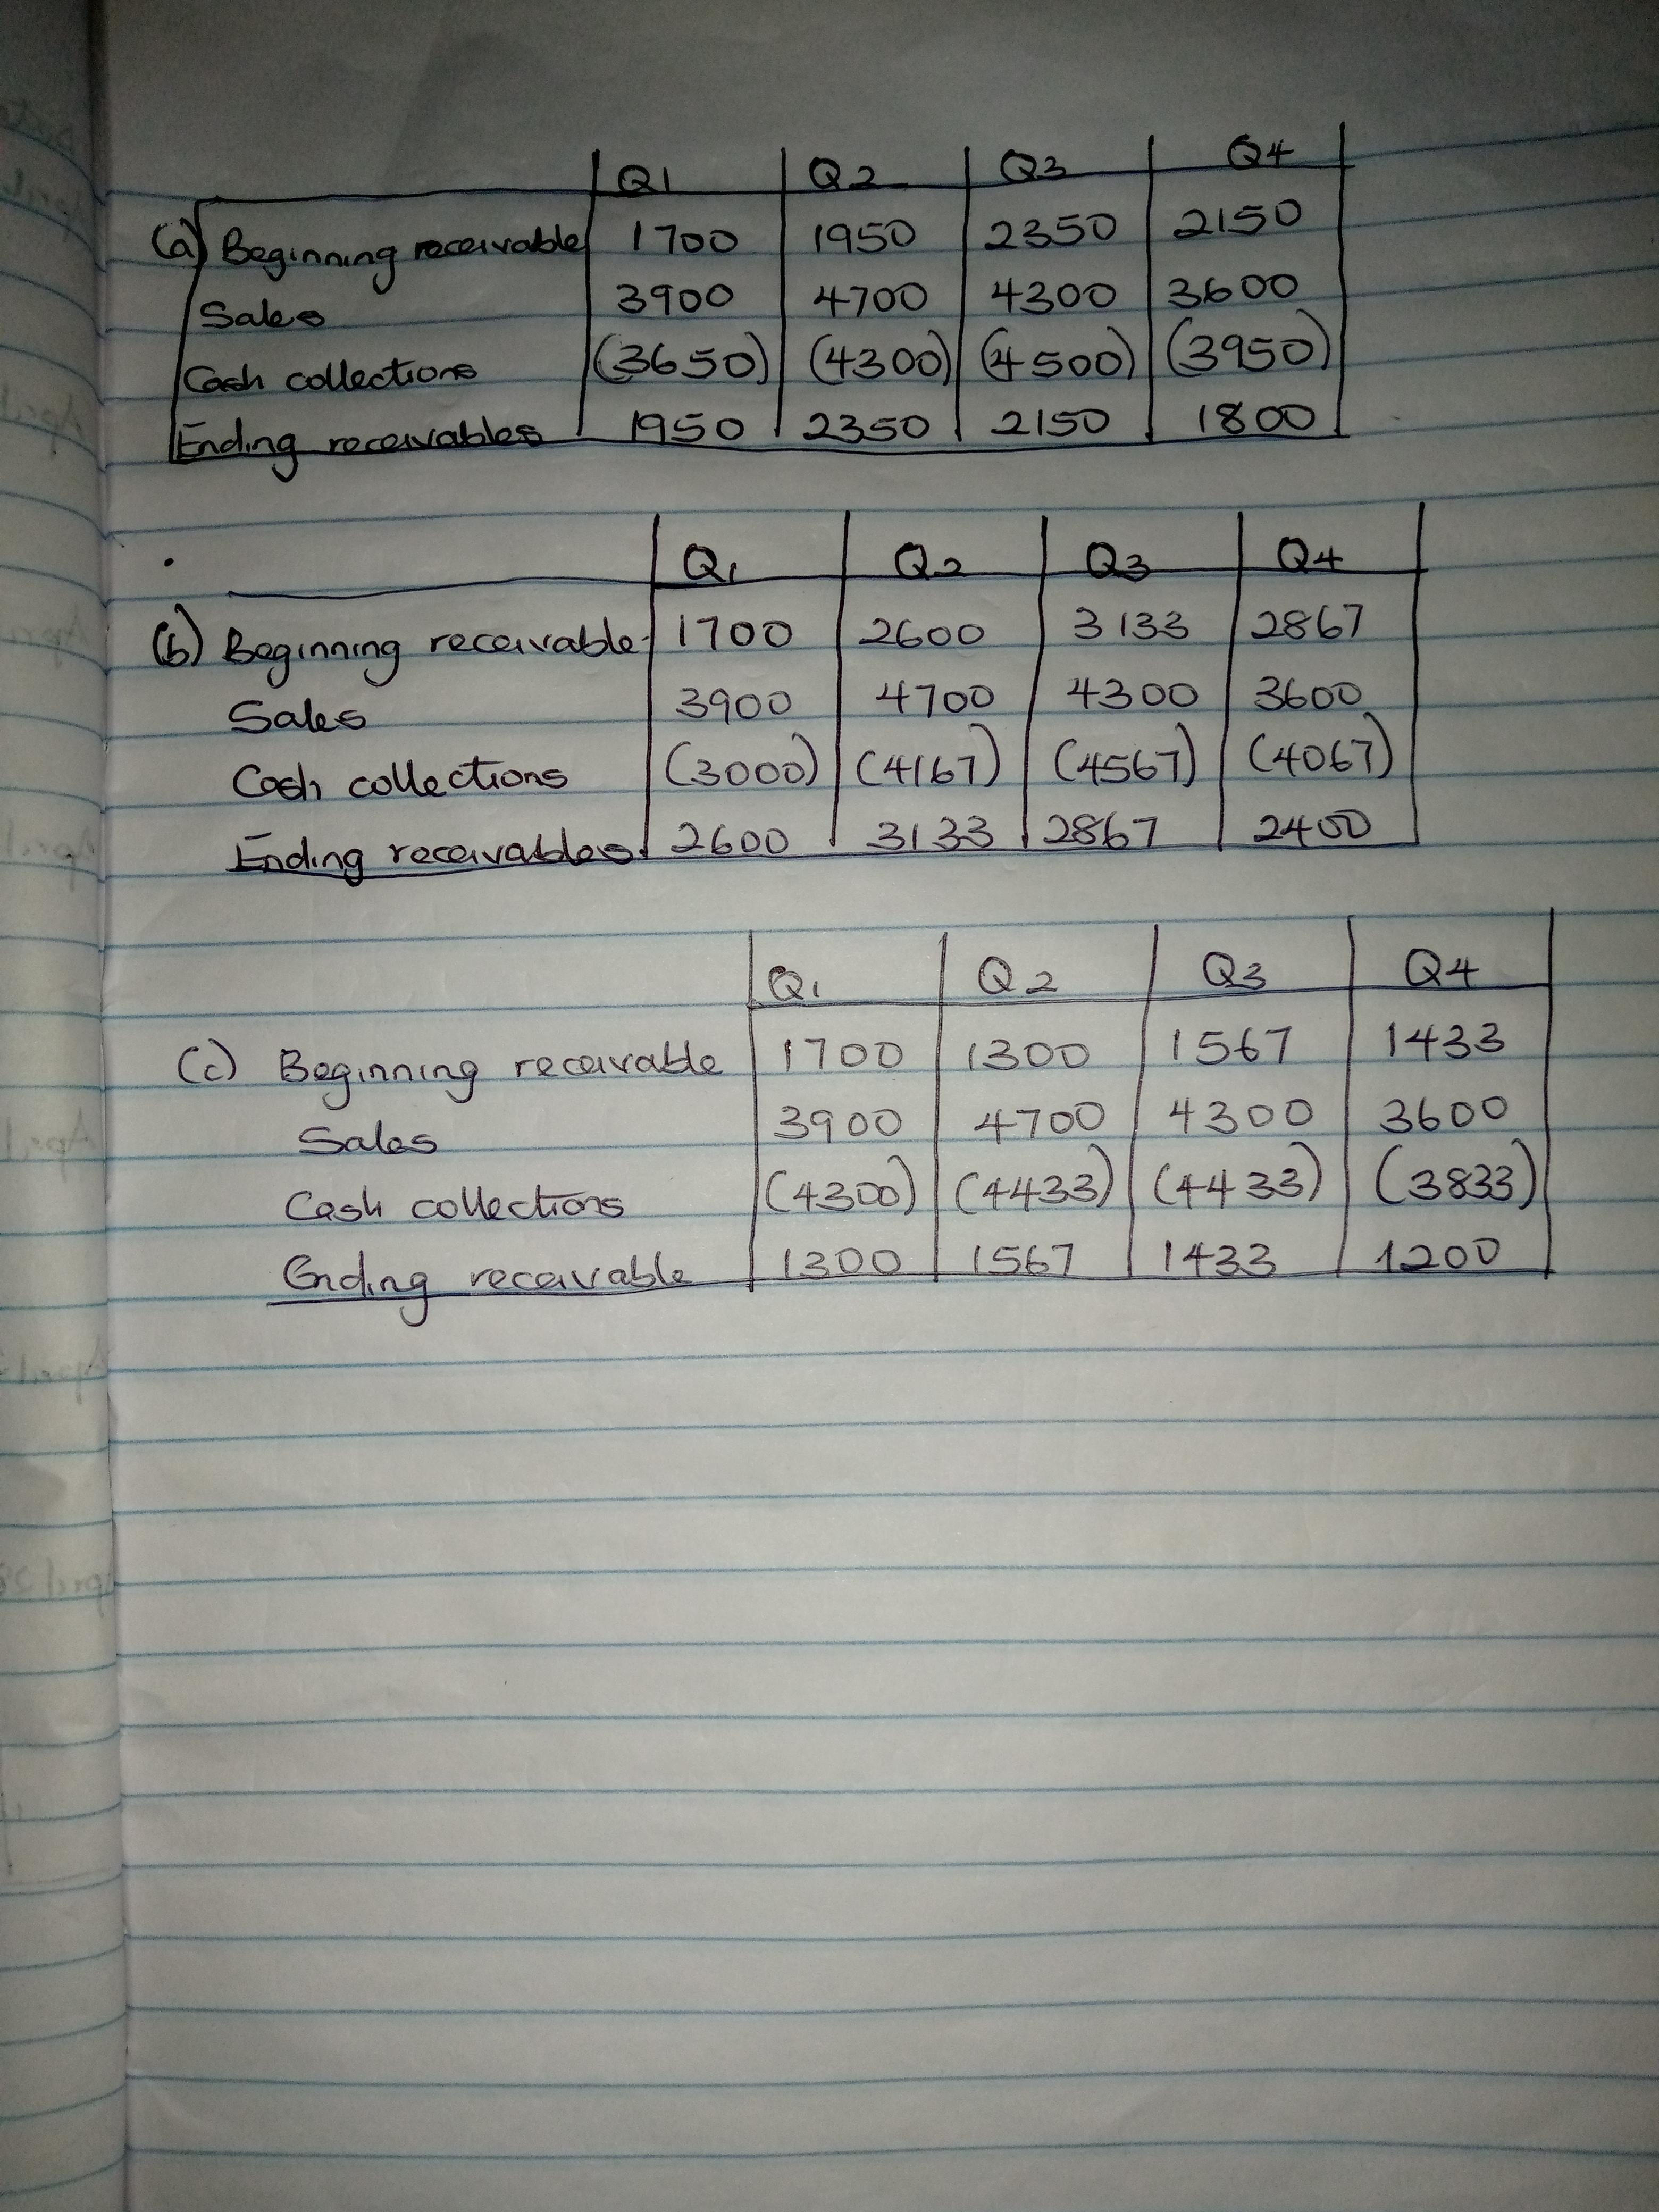 Q1 Q2 Q3 Q4
(a) Beginning receivable 1700 1950 2350 2150
Sales 3900 4700 4300 3600
Cash collections (3650) (4300) (4500) (3950)
Ending receivables 1950 2350 2150 1800
Q1 Q2 Q3 Q4
(b) Beginning receivable 1700 2600 3133 2867
Sales 3900 4700 4300 3600
Cash collections (3000) (4167) (4567) (4067)
Ending receivables 2600 3133 2867 2400
Q1 Q2 Q3 Q4
(c) Beginning receivable 1700 1300 1567 1433
Sales 3900 4700 4300 3600
Cash collections (4300) (4433) (4433) (3833)
Ending receivable 1300 1567 1433 1200